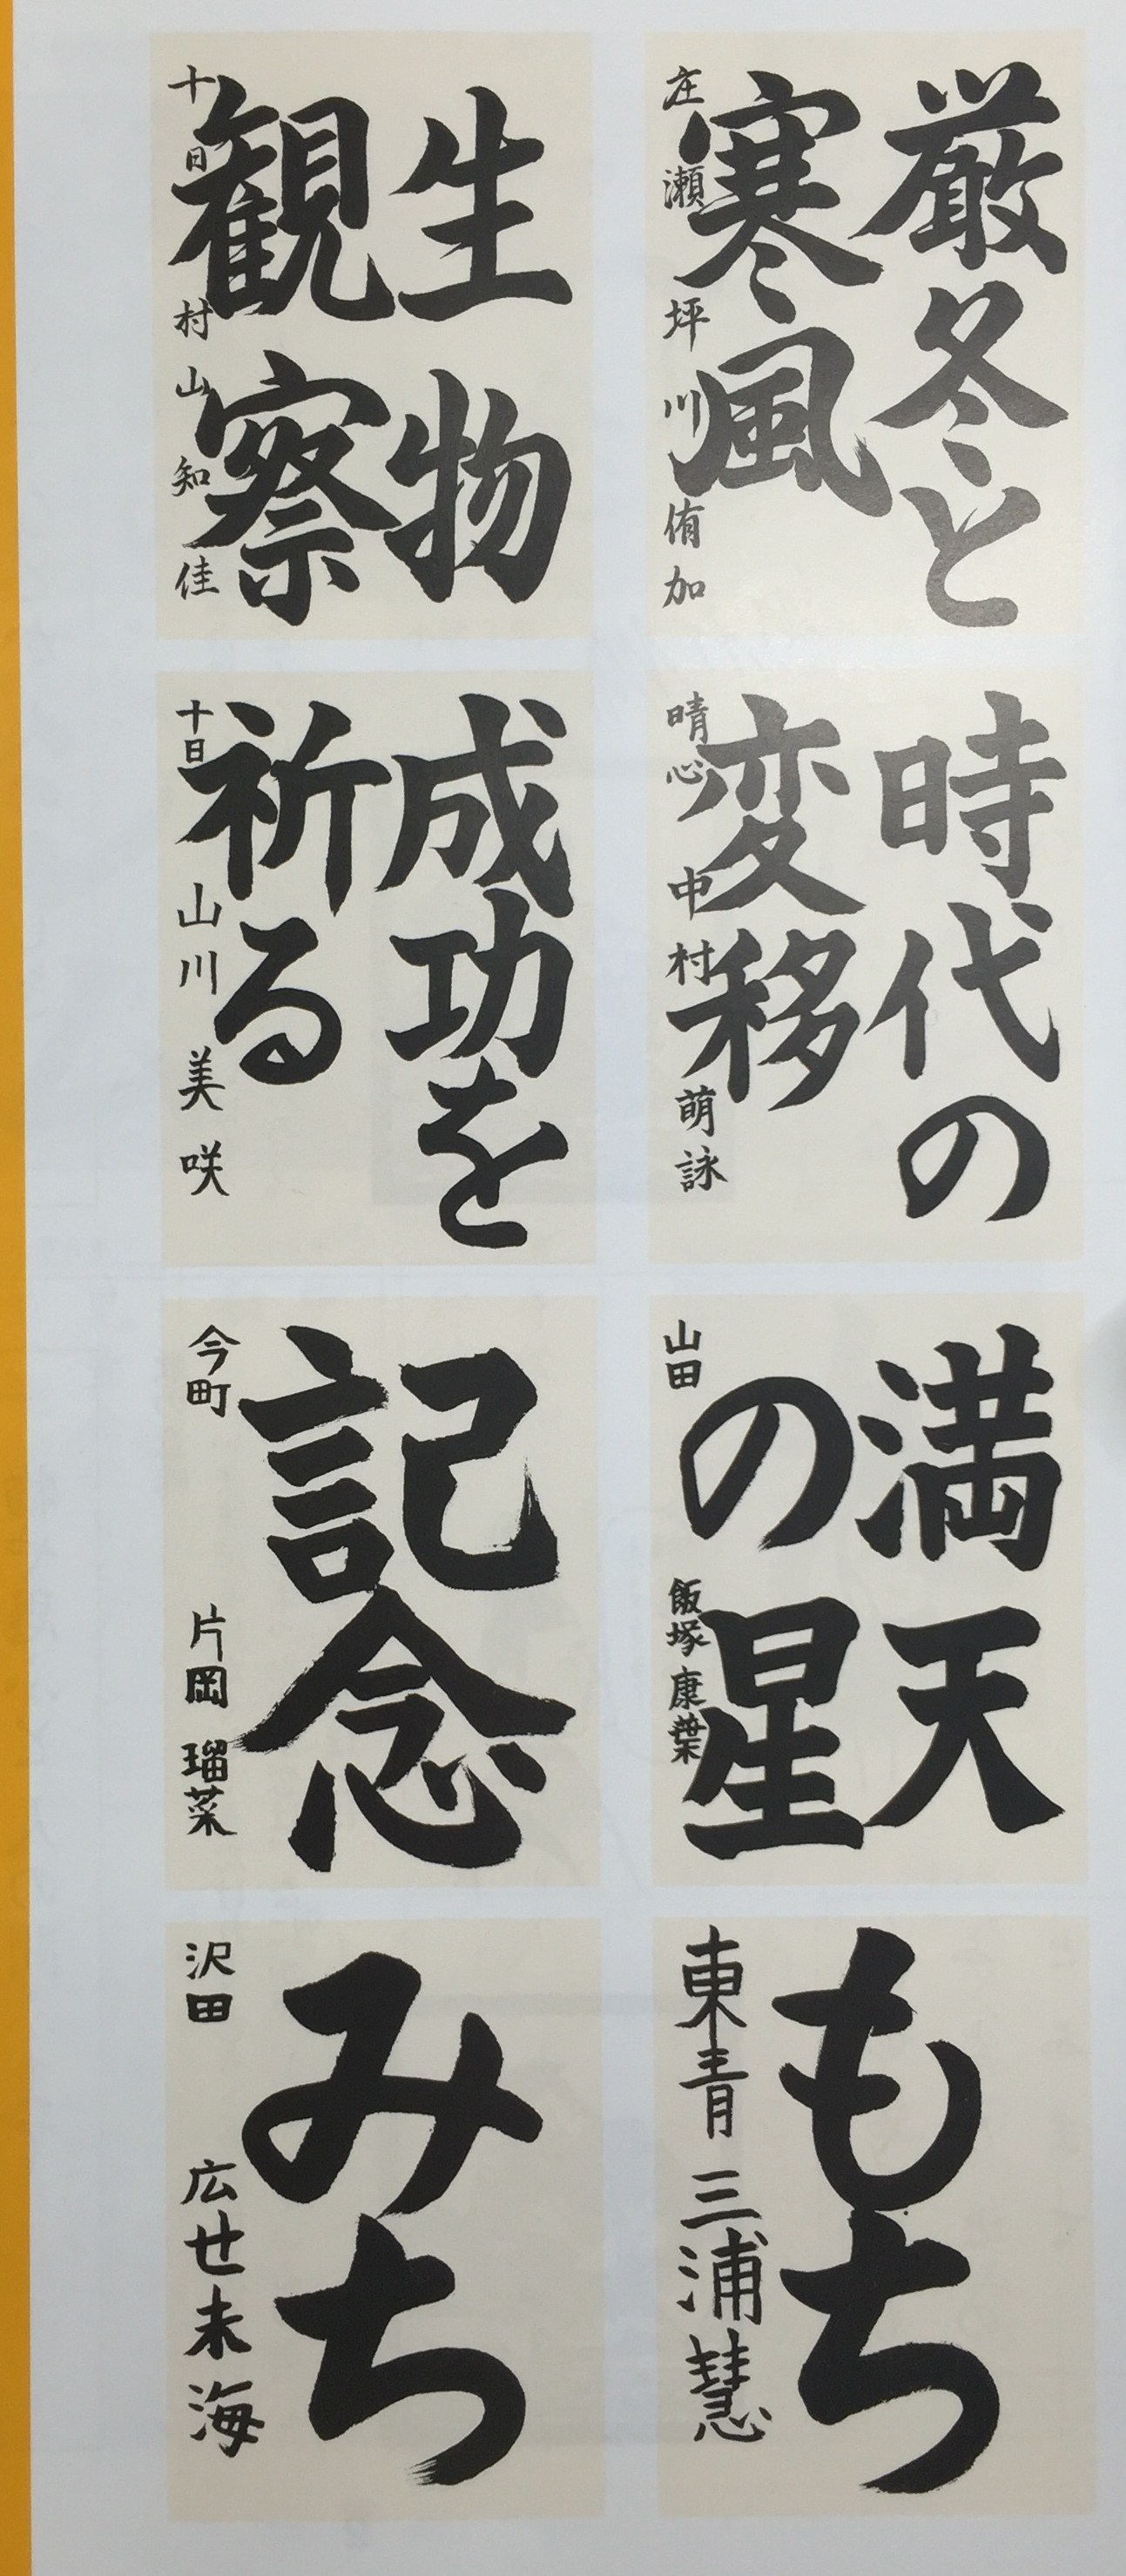 厳冬と
寒風
庄瀬 坪川侑加
生物
観察
十日 村山知佳
時代の
変移
晴心 中村萌詠
成功を
祈る
十日 山川美咲
満天
の星
山田 飯塚康葉
記念
今町 片岡瑠菜
もち
東青 三浦慧
みち
沢田 広せ未海